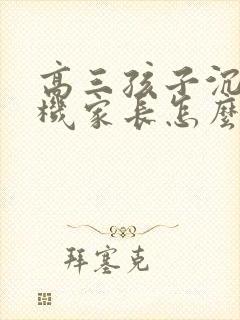 高三孩子沉
機家長怎麼
拜塞克